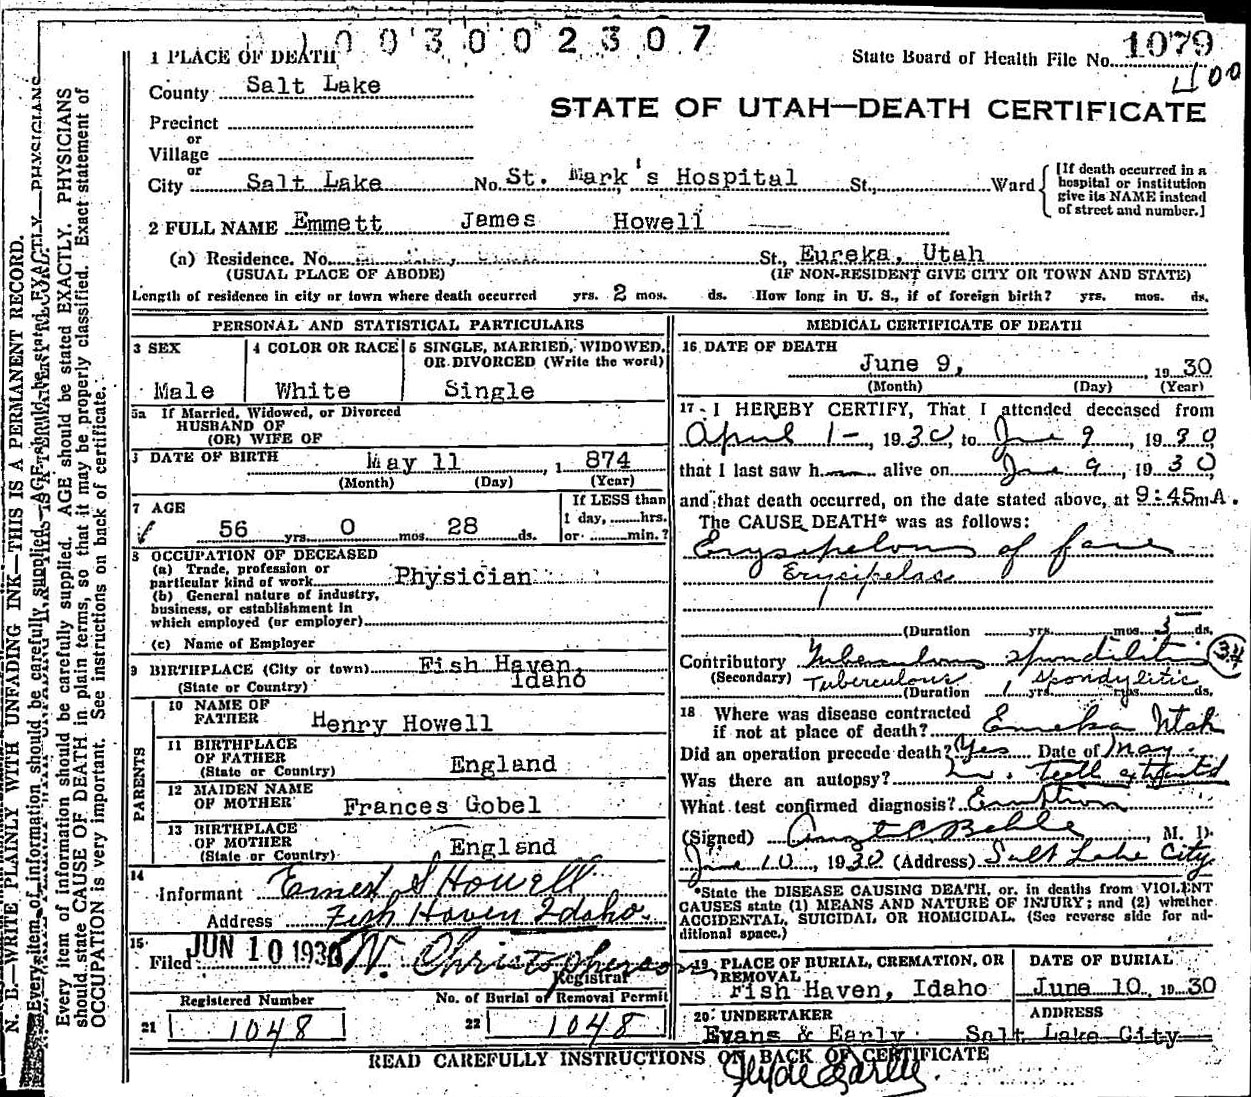 1003002307
1 PLACE OF DEATH
State Board of Health File No. 1079
400
County Salt Lake
STATE OF UTAH—DEATH CERTIFICATE
Precinct
or
Village
or
City Salt Lake No. St. Mark's Hospital St., Ward
[If death occurred in a
hospital or institution
give its NAME instead
of street and number.]
2 FULL NAME Emmett James Howell
(a) Residence. No. St., Eureka, Utah
(USUAL PLACE OF ABODE) (IF NON-RESIDENT GIVE CITY OR TOWN AND STATE)
Length of residence in city or town where death occurred yrs. 2 mos. ds. How long in U. S., if of foreign birth? yrs. mos. ds.
PERSONAL AND STATISTICAL PARTICULARS
3 SEX
Male
4 COLOR OR RACE
White
5 SINGLE, MARRIED, WIDOWED,
OR DIVORCED (Write the word)
Single
5a If Married, Widowed, or Divorced
HUSBAND OF
(OR) WIFE OF
DATE OF BIRTH
May 11, 1 874
(Month) (Day) (Year)
7 AGE
56 yrs. 0 mos. 28 ds.
If LESS than
1 day, ....... hrs.
or ....... min.?
8 OCCUPATION OF DECEASED
(a) Trade, profession or
particular kind of work Physician
(b) General nature of industry,
business, or establishment in
which employed (or employer)
(c) Name of Employer
9 BIRTHPLACE (City or town) Fish Haven,
(State or Country) Idaho
PARENTS
10 NAME OF
FATHER Henry Howell
11 BIRTHPLACE
OF FATHER England
(State or Country)
12 MAIDEN NAME
OF MOTHER Frances Gobel
13 BIRTHPLACE
OF MOTHER England
(State or Country)
14
Informant Ernest S Howell
Address Fish Haven Idaho.
15
Filed JUN 10 1930 W. Christopherson
Registrar
Registered Number
21 1048
No. of Burial or Removal Permit
22 1048
MEDICAL CERTIFICATE OF DEATH
16 DATE OF DEATH
June 9, 1930
(Month) (Day) (Year)
17 I HEREBY CERTIFY, That I attended deceased from
April 1-, 1930, to June 9, 1930,
that I last saw h alive on June 9, 1930,
and that death occurred, on the date stated above, at 9:45m A.
The CAUSE DEATH* was as follows:
Erysipelous of face
Erysipelas
(Duration yrs. mos. 5 ds.
Contributory Tuberculous spondilitis 34
(Secondary) Tuberculous spondylitic
(Duration 1 yrs. mos. ds.
18 Where was disease contracted
if not at place of death? Eureka Utah
Did an operation precede death? Yes Date of May.
Was there an autopsy? Teeth extracted
What test confirmed diagnosis?
(Signed) Behle, M. D.
June 10, 1930 (Address) Salt Lake City
*State the DISEASE CAUSING DEATH, or, in deaths from VIOLENT
CAUSES state (1) MEANS AND NATURE OF INJURY; and (2) whether
ACCIDENTAL, SUICIDAL OR HOMICIDAL. (See reverse side for ad-
ditional space.)
19 PLACE OF BURIAL, CREMATION, OR
REMOVAL
Fish Haven, Idaho
DATE OF BURIAL
June 10, 1930
20 UNDERTAKER
Evans & Early
ADDRESS
Salt Lake City
READ CAREFULLY INSTRUCTIONS ON BACK OF CERTIFICATE
N. B.—WRITE PLAINLY WITH UNFADING INK—THIS IS A PERMANENT RECORD.
Every item of information should be carefully supplied. AGE should be stated EXACTLY. PHYSICIANS
should state CAUSE OF DEATH in plain terms, so that it may be properly classified. Exact statement of
OCCUPATION is very important. See instructions on back of certificate.